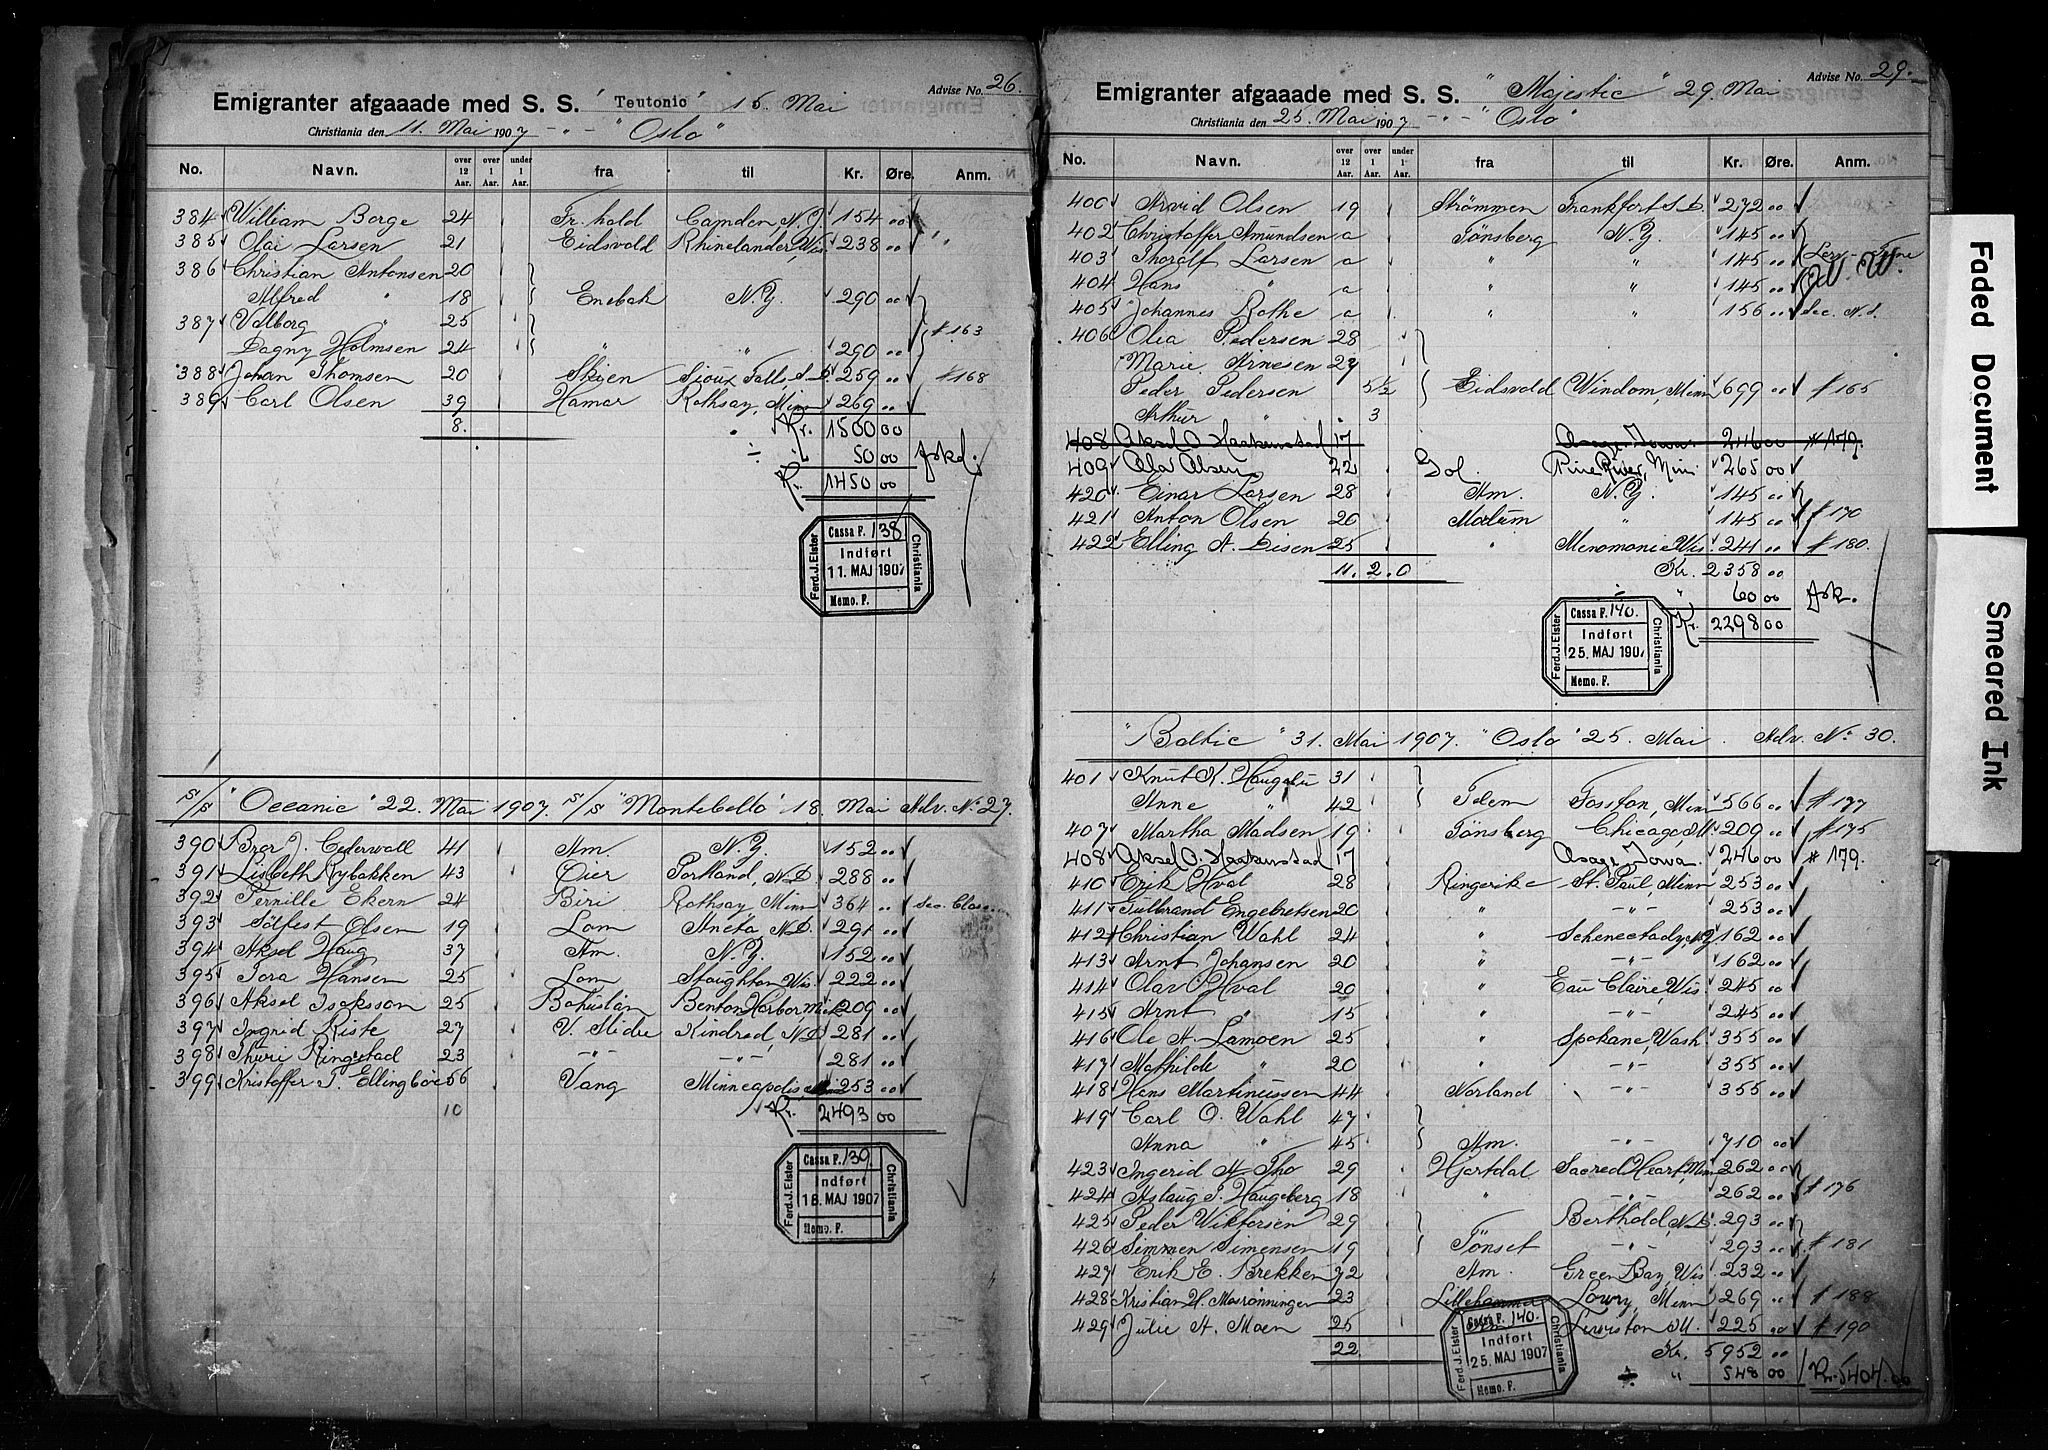 Advise No. 26.
Emigranter afgaaade med S. S. "Teutonic" 15. Mai
Christiania den 11. Mai 1907 - " - "Oslo"
No. Navn. over 12 Aar. over 1 Aar. under 1 Aar. fra til Kr. Øre. Anm.
384 William Borge 24 Fr. hald Camden, N.Y. 154 00
385 Olai Larsen 21 Eidsvold Rhinelander, Wis. 238 00 "
386 Christian Antonsen 20
Alfred " 18 Enebak N.Y. 290 00
387 Valborg " 25 # 163
Dagny Holmsen 24 " " 290 00
388 Johan Thomsen 20 Skien Sioux Falls, S.D. 259 00 # 168
389 Carl Olsen 39 Hamar Rothsay, Minn 269 00
8. Kr. 1500 00
÷ 50 00 fskd.
Kr. 1450 00
Cassa F. 138
Indført
11. MAJ 1907
Memo. F.
Ferd. J. Elster
Christiania
S/S "Oceanic" 22. Mai 1907. S/S "Montebello" 18. Mai Adv. No. 27.
390 Bror J. Cederwall 41 Am. N.Y. 152 00
391 Lisbeth Rybakken 43 Öier Portland, N.D. 288 00
392 Pernille Ekern 24 Biri Rothsay Minn 364 00 Sec. Class
393 Sölfest Olsen 19 Lom Aneta, N.D. 291 00
394 Aksel Haug 37 Am. N.Y. 152 00
395 Tora Hansen 25 Lom Stoughton Wis. 222 00
396 Aksel Isaksson 25 Bohuslän Benton Harbor, Mich 209 00
397 Ingrid Kiste 27 V. Slidre Kindred, N.D. 281 00
398 Thuri Ringstad 23 - " - - " - 281 00
399 Kristoffer T. Ellingböe 56 Vang Minneapolis, Minn 253 00
10 Kr. 2493 00
Cassa F. 139.
Indført
18. MAJ 1907
Memo. F.
Ferd. J. Elster
Christiania
Advise No. 29.
Emigranter afgaaade med S. S. "Majestic" 29. Mai
Christiania den 25. Mai 1907 - " - "Oslo"
No. Navn. over 12 Aar. over 1 Aar. under 1 Aar. fra til Kr. Øre. Anm.
400 Arvid Olsen 19 Strömmen Frankfort S.D. 272 00
402 Christoffer Amundsen a Tönsberg N.Y. 145 00
403 Thoralf Larsen a " " 145 00
404 Hans " a " " 145 00 W. W.
405 Johannes Rothe a " " 156 00 Sec. N.S.
406 Olia Pedersen 28
Marie Arnesen 27
Peder Pedersen 5 1/2 Eidsvold Windom, Minn 699 00 # 165
Arthur " 3
408 Aksel O. Haakenstad 17 Osage, Iowa 246 00 # 179.
409 Ola Olsen 22 Gol. Pine River, Minn 265 00
420 Einar Larsen 28 Am. N.Y. 145 00
421 Anton Olsen 20 Modum " 145 00 # 170
422 Elling A. Disen 25 " Menomonie Wis. 241 00 # 180.
11. 2. 0 Kr. 2358 00
" 60 00 fsk.
Kr. 2298 00
Cassa F. 140.
Indført
25. MAJ 1907
Memo. F.
Ferd. J. Elster
Christiania
"Baltic" 31. Mai 1907. "Oslo" 25. Mai. Adv. No. 30.
401 Knut K. 31
Anne " 42 Tdem Fosston, Minn 566 00 # 177
407 Martha Madsen 19 Tönsberg Chicago, Ill. 209 00 # 175
408 Aksel O. Haakenstad 17 Osage, Iowa. 246 00 # 179.
410 Erik Hval 28 Ringerike St. Paul, Minn 253 00
411 Gulbrand Engebretsen 20 " - " - 253 00
412 Christian Wahl 24 " Schenectady, N.Y. 162 00
413 Arnt Johansen 20 " - " - 162 00
414 Olav Hval 20 " Eau Claire, Wis. 245 00
415 Arnt " 15 " - " - 245 00
416 Ole A. Lamoen 25 " Spokane, Wash 355 00
417 Mathilde " 20 " - " - 355 00
418 Hans Martinussen 44 Norland - " - 355 00
419 Carl O. Wahl 47
Anna " 45 Am. - " - 710 00
423 Ingerid A. Tho 29 Hjartdal Sacred Heart, Minn 262 00
424 Aslaug T. Haugeberg 18 " - " - 262 00 # 176
425 Peder Wiktorsen 29 Berthold, N.D. 293 00
426 Simmen Simensen 19 Tönset - " - 293 00 # 181
427 Erik E. Brekken 32 Am. Green Bay, Wis 232 00
428 Kristian H. Mosrönningen 23 Lillehammer Lowry, Minn 269 00 # 188
429 Julie A. Moen 25 Lewiston Ill. 225 00 # 190
22 Kr. 5952 00
÷ " 548 00 Kr. 5404.00
Cassa F. 140.
Indført
25. MAJ 1907
Memo. F.
Ferd. J. Elster
Christiania
Faded Document
Smeared Ink